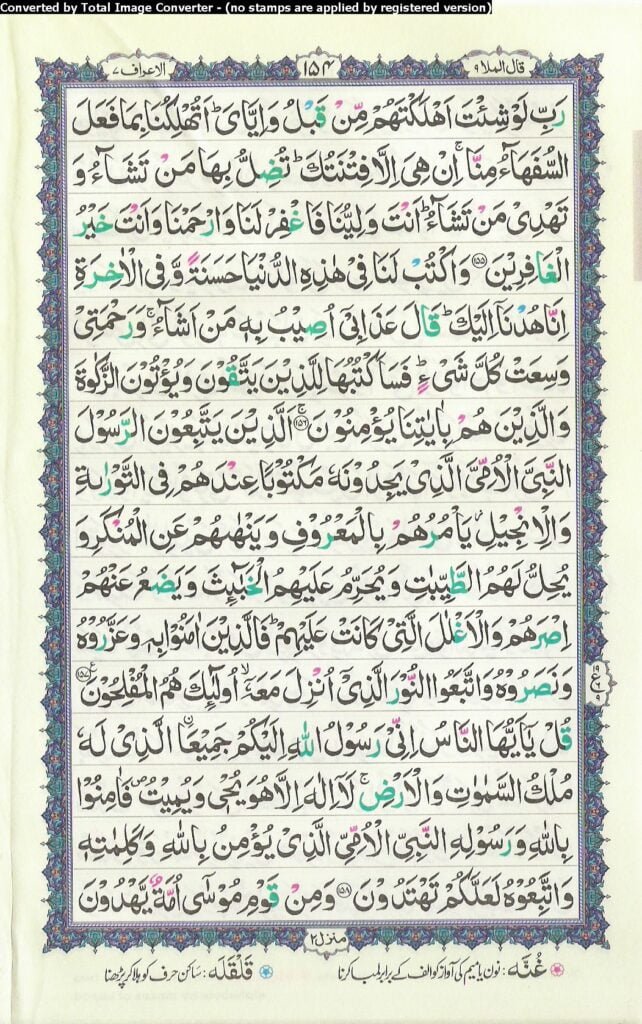 Converted by Total Image Converter - (no stamps are applied by registered version)
قال الملا ٩
١٥٤
الاعراف ٧
رَبِّ لَوْ شِئْتَ اَهْلَكْتَهُمْ مِّنْ قَبْلُ وَاِيَّایَ ؕ اَتُهْلِكُنَا بِمَا فَعَلَ
السُّفَهَآءُ مِنَّا ۚ اِنْ هِیَ اِلَّا فِتْنَتُكَ ؕ تُضِلُّ بِهَا مَنْ تَشَآءُ وَ
تَهْدِیْ مَنْ تَشَآءُ ؕ اَنْتَ وَلِیُّنَا فَاغْفِرْ لَنَا وَارْحَمْنَا وَاَنْتَ خَیْرُ
الْغَافِرِیْنَ ﴿۱۵۵﴾ وَاكْتُبْ لَنَا فِیْ هٰذِهِ الدُّنْیَا حَسَنَةً وَّ فِی الْاٰخِرَةِ
اِنَّا هُدْنَاۤ اِلَیْكَ ؕ قَالَ عَذَابِیْۤ اُصِیْبُ بِهٖ مَنْ اَشَآءُ ۚ وَرَحْمَتِیْ
وَسِعَتْ كُلَّ شَیْءٍ ؕ فَسَاَكْتُبُهَا لِلَّذِیْنَ یَتَّقُوْنَ وَیُؤْتُوْنَ الزَّكٰوةَ
وَالَّذِیْنَ هُمْ بِاٰیٰتِنَا یُؤْمِنُوْنَ ۚ﴿۱۵۶﴾ اَلَّذِیْنَ یَتَّبِعُوْنَ الرَّسُوْلَ
النَّبِیَّ الْاُمِّیَّ الَّذِیْ یَجِدُوْنَهٗ مَكْتُوْبًا عِنْدَهُمْ فِی التَّوْرٰىةِ
وَالْاِنْجِیْلِ ؗ یَاْمُرُهُمْ بِالْمَعْرُوْفِ وَیَنْهٰىهُمْ عَنِ الْمُنْكَرِ وَ
یُحِلُّ لَهُمُ الطَّیِّبٰتِ وَیُحَرِّمُ عَلَیْهِمُ الْخَبٰٓئِثَ وَیَضَعُ عَنْهُمْ
اِصْرَهُمْ وَالْاَغْلٰلَ الَّتِیْ كَانَتْ عَلَیْهِمْ ؕ فَالَّذِیْنَ اٰمَنُوْا بِهٖ وَعَزَّرُوْهُ
وَنَصَرُوْهُ وَاتَّبَعُوا النُّوْرَ الَّذِیْۤ اُنْزِلَ مَعَهٗۤ ۙ اُولٰٓئِكَ هُمُ الْمُفْلِحُوْنَ ﴿۱۵۷﴾ ع
قُلْ یٰۤاَیُّهَا النَّاسُ اِنِّیْ رَسُوْلُ اللهِ اِلَیْكُمْ جَمِیْعَا ۣ الَّذِیْ لَهٗ
مُلْكُ السَّمٰوٰتِ وَالْاَرْضِ ۚ لَاۤ اِلٰهَ اِلَّا هُوَ یُحْیٖ وَیُمِیْتُ ۪ فَاٰمِنُوْا
بِاللهِ وَرَسُوْلِهِ النَّبِیِّ الْاُمِّیِّ الَّذِیْ یُؤْمِنُ بِاللهِ وَكَلِمٰتِهٖ
وَاتَّبِعُوْهُ لَعَلَّكُمْ تَهْتَدُوْنَ ﴿۱۵۸﴾ وَمِنْ قَوْمِ مُوْسٰۤی اُمَّةٌ یَّهْدُوْنَ
منزل ٢
غُنَّه: نون یا میم کی آواز کو الف کے برابر لمبا کرنا
قَلْقَلَه: ساکن حرف کو ہلا کر پڑھنا